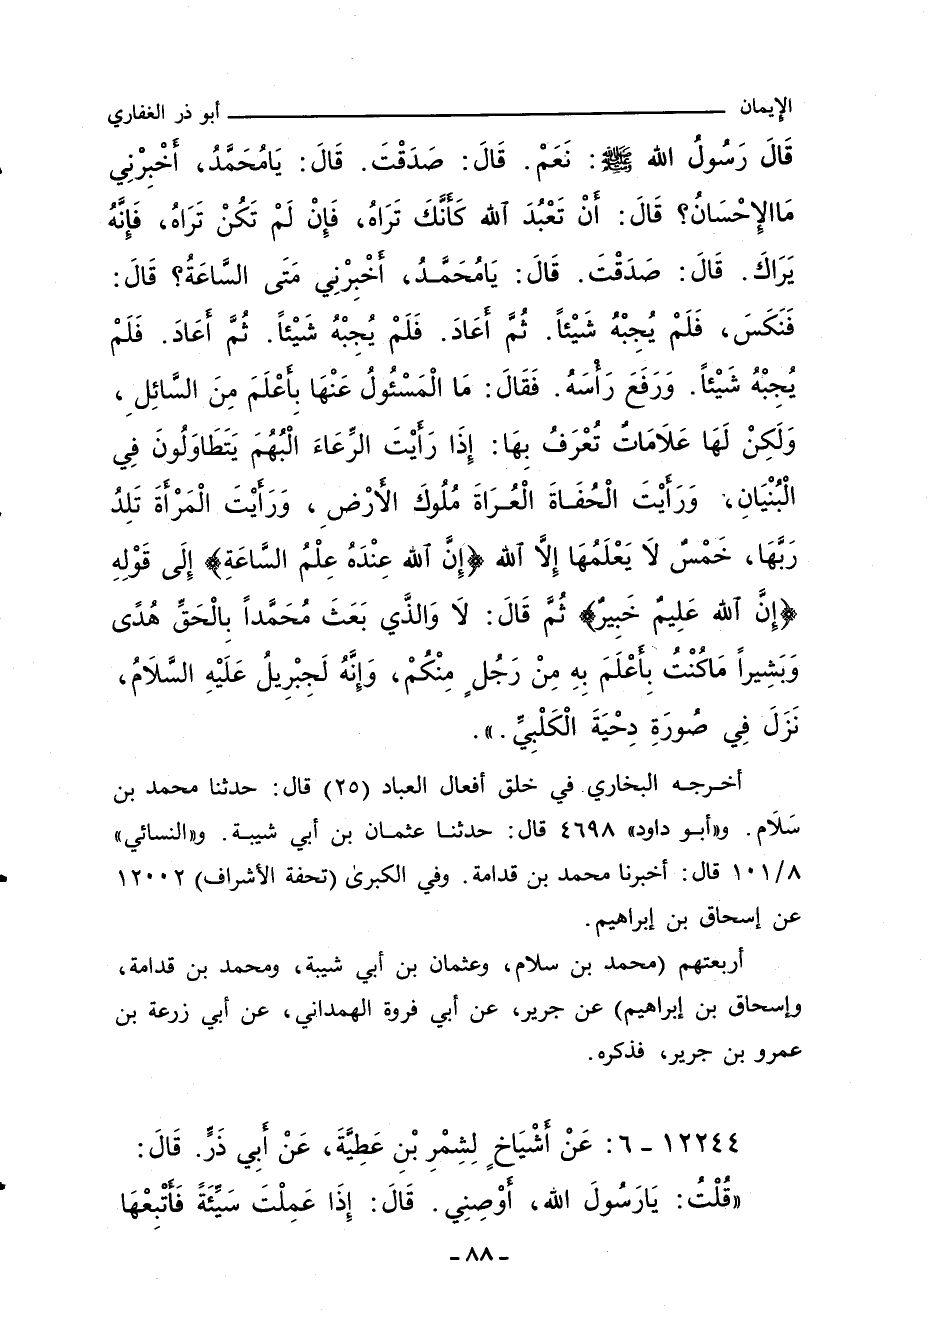 الإيمان ــــــــ أبو ذر الغفاري
قَالَ رَسُولُ الله ﷺ: نَعَمْ. قَالَ: صَدَقْتَ. قَالَ: يَامُحَمَّدُ، أَخْبِرْنِي
مَاالإِحْسَانُ؟ قَالَ: أَنْ تَعْبُدَ ٱلله كَأَنَّكَ تَرَاهُ، فَإِنْ لَمْ تَكُنْ تَرَاهُ، فَإِنَّهُ
يَرَاكَ. قَالَ: صَدَقْتَ. قَالَ: يَامُحَمَّدُ، أَخْبِرْنِي مَتَى السَّاعَةُ؟ قَالَ:
فَنَكَسَ، فَلَمْ يُجِبْهُ شَيْئاً. ثُمَّ أَعَادَ. فَلَمْ يُجِبْهُ شَيْئاً. ثُمَّ أَعَادَ. فَلَمْ
يُجِبْهُ شَيْئاً. وَرَفَعَ رَأْسَهُ. فَقَالَ: مَا الْمَسْئُولُ عَنْهَا بِأَعْلَمَ مِنَ السَّائِلِ،
وَلَكِنْ لَهَا عَلَامَاتٌ تُعْرَفُ بِهَا: إِذَا رَأَيْتَ الرِّعَاءَ الْبُهُمَ يَتَطَاوَلُونَ فِي
الْبُنْيَانِ، وَرَأَيْتَ الْحُفَاةَ الْعُرَاةَ مُلُوكَ الأَرْضِ، وَرَأَيْتَ الْمَرْأَةَ تَلِدُ
رَبَّهَا، خَمْسٌ لَا يَعْلَمُهَا إِلَّا ٱلله ﴿إِنَّ ٱلله عِنْدَهُ عِلْمُ السَّاعَةِ﴾ إِلَى قَوْلِهِ
﴿إِنَّ ٱلله عَلِيمٌ خَبِيرٌ﴾ ثُمَّ قَالَ: لَا وَالَّذِي بَعَثَ مُحَمَّداً بِالْحَقِّ هُدًى
وَبَشِيراً مَاكُنْتُ بِأَعْلَمَ بِهِ مِنْ رَجُلٍ مِنْكُمْ، وَإِنَّهُ لَجِبْرِيلُ عَلَيْهِ السَّلَامُ،
نَزَلَ فِي صُورَةِ دِحْيَةَ الْكَلْبِيِّ.».
أخرجه البخاري في خلق أفعال العباد (٢٥) قال: حدثنا محمد بن
سَلَام. و«أبو داود» ٤٦٩٨ قال: حدثنا عثمان بن أبي شيبة. و«النسائي»
١٠١/٨ قال: أخبرنا محمد بن قدامة. وفي الكبرىٰ (تحفة الأشراف) ١٢٠٠٢
عن إسحاق بن إبراهيم.
أربعتهم (محمد بن سلام، وعثمان بن أبي شيبة، ومحمد بن قدامة،
وإسحاق بن إبراهيم) عن جرير، عن أبي فروة الهمداني، عن أبي زرعة بن
عمرو بن جرير، فذكره.
١٢٢٤٤ - ٦: عَنْ أَشْيَاخٍ لِشِمْرِ بْنِ عَطِيَّةَ، عَنْ أَبِي ذَرٍّ. قَالَ:
«قُلْتُ: يَارَسُولَ الله، أَوْصِنِي. قَالَ: إِذَا عَمِلْتَ سَيِّئَةً فَأَتْبِعْهَا
- ٨٨ -